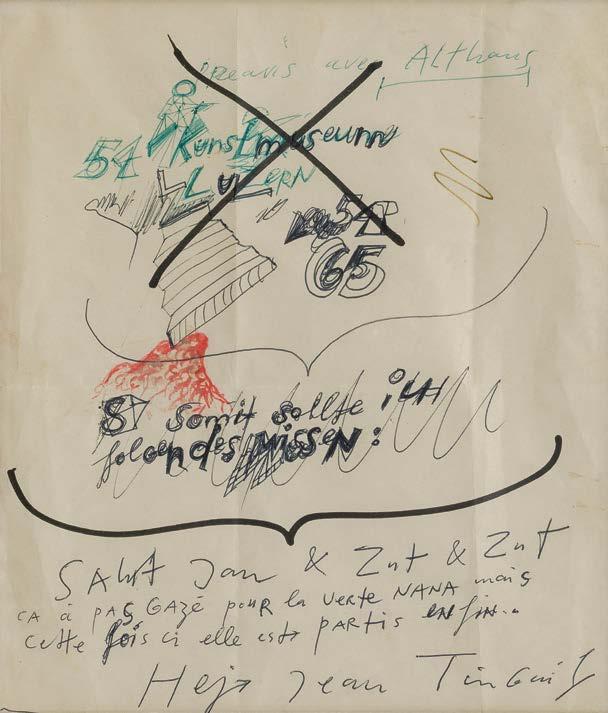 avec Althaus
54 Kunstmuseum
LUZERN
54
65
87 somit sollte ich
folgendes wissen:
SAlut Jan & Zut & Zut
CA à PAS GAZÉ pour la verte NANA mais
cette fois ci elle est partis enfin..
Hejo Jean Tinguely